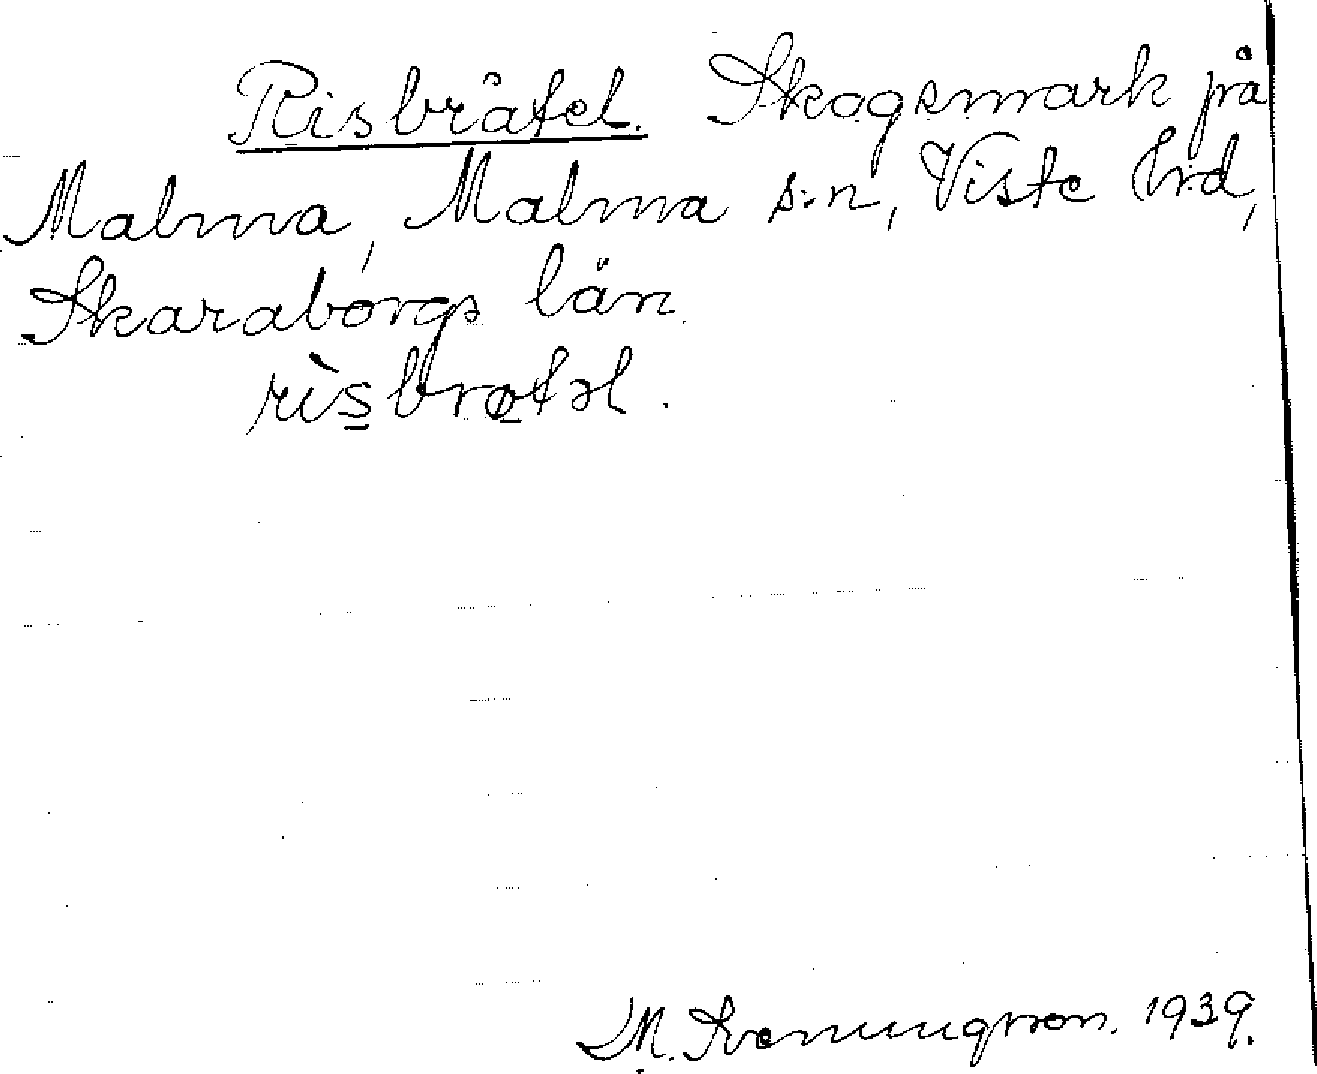 Risbråtel. Skogsmark på
Malma, Malma s:n, Viste hrd,
Skaraborgs län.
rìsbrɷtəl.
M. Sveningsson. 1939.